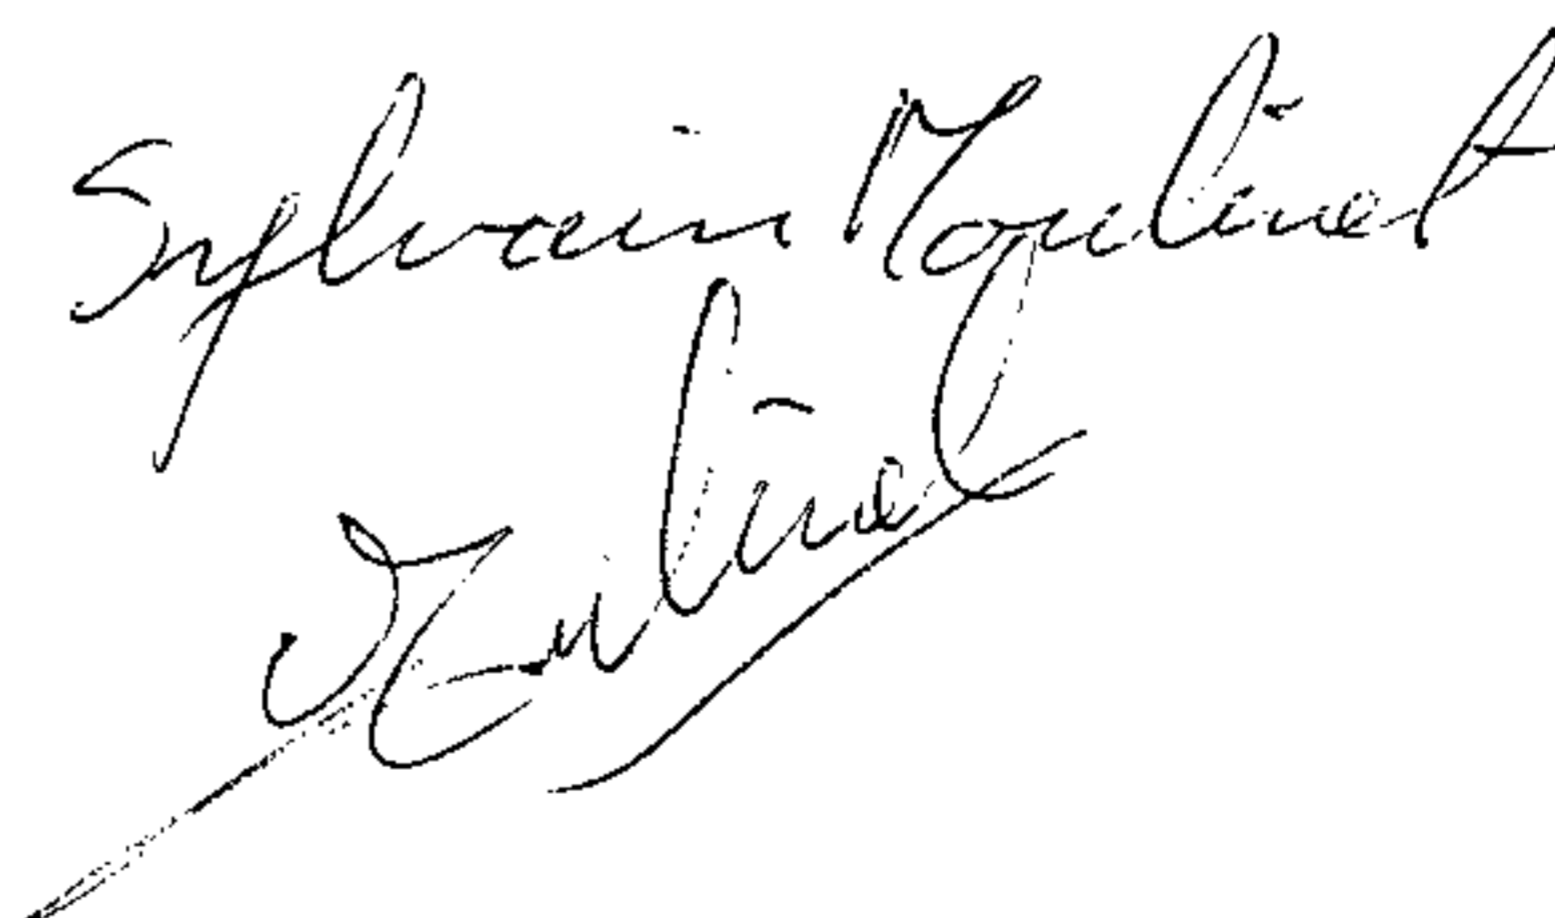 Sylvain Moulinet
Moulinet